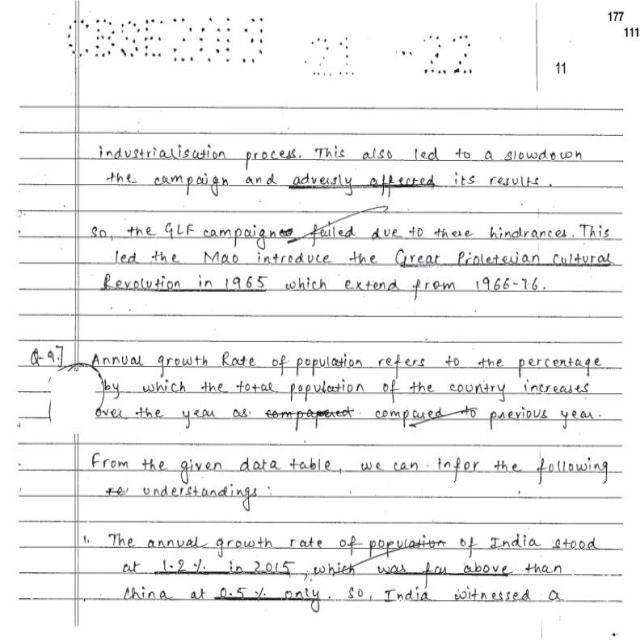 177
111
CBSE 2019 21 - 22
11
industrialisation process. This also led to a slowdown
the campaign and adversly affected its results.
so, the GLF campaign failed due to these hindrances. This
led the Mao introduce the Great Proleterian Cultural
Revolution in 1965 which extend from 1966-76.
Q-9.] Annual growth Rate of population refers to the percentage
by which the total population of the country increases
over the year as compapered compared to previous year.
From the given data table, we can infer the following
re understandings:
1. The annual growth rate of population of India stood
at 1.2% in 2015, which was far above than
China at 0.5% only. So, India witnessed a